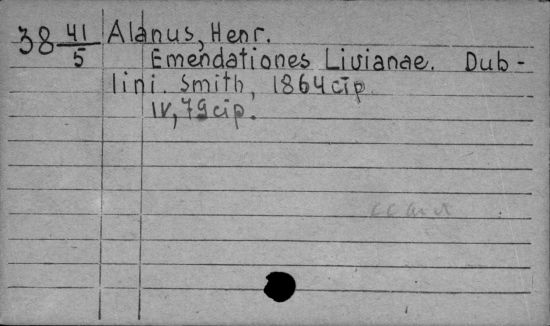 38 41/5 Alanus, Henr.
Emendationes Livianae. Dub-
lini. Smith, 1864 стр.
IV, 79 стр.